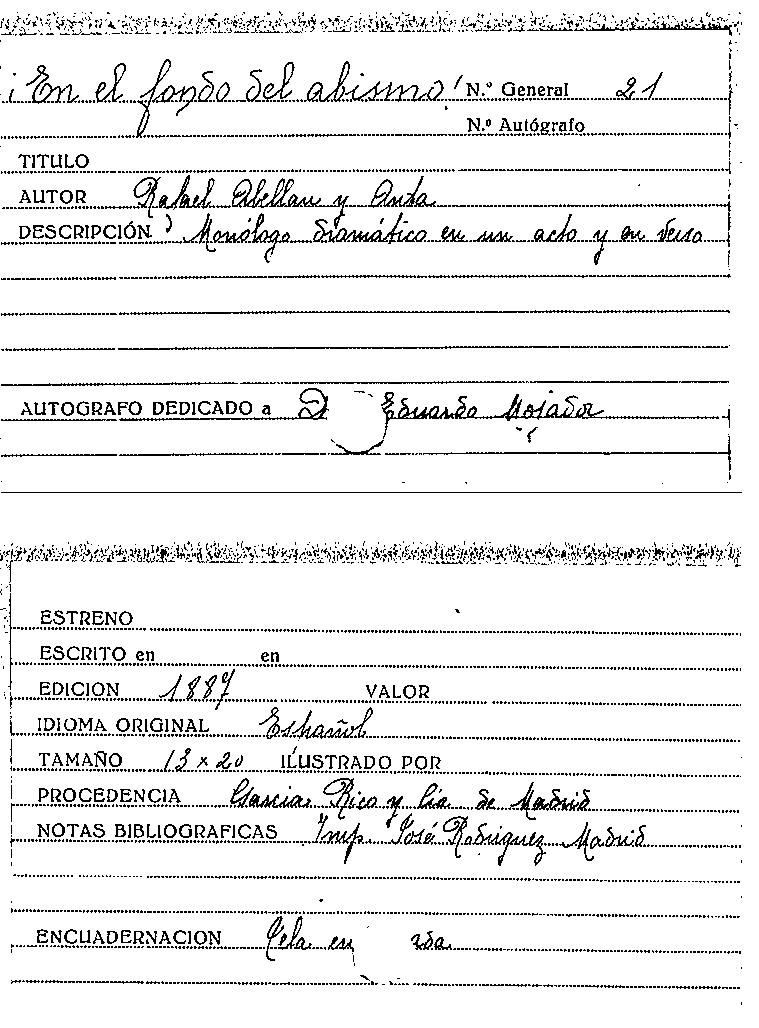 ¡En el fondo del abismo! N.º General 21
N.º Autógrafo
TITULO
AUTOR Rafael Abellan y Anta
DESCRIPCIÓN Monólogo dramático en un acto y en verso
AUTOGRAFO DEDICADO a D Eduardo
ESTRENO
ESCRITO en en
EDICION 1887 VALOR
IDIOMA ORIGINAL Español
TAMAÑO 13 x 20 ILUSTRADO POR
PROCEDENCIA Garcia Rico y Cia de Madrid
NOTAS BIBLIOGRAFICAS Imp. José Rodriguez Madrid
ENCUADERNACION Tela en